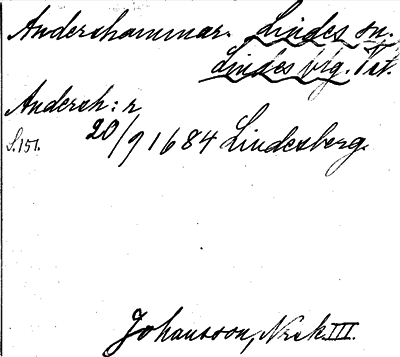 Andershammar. Lindes sn.
Lindes blg. Vstm.
Andersh: r
S.151. 20/9 1684 Lindesberg.
Johansson, Nrsk III.